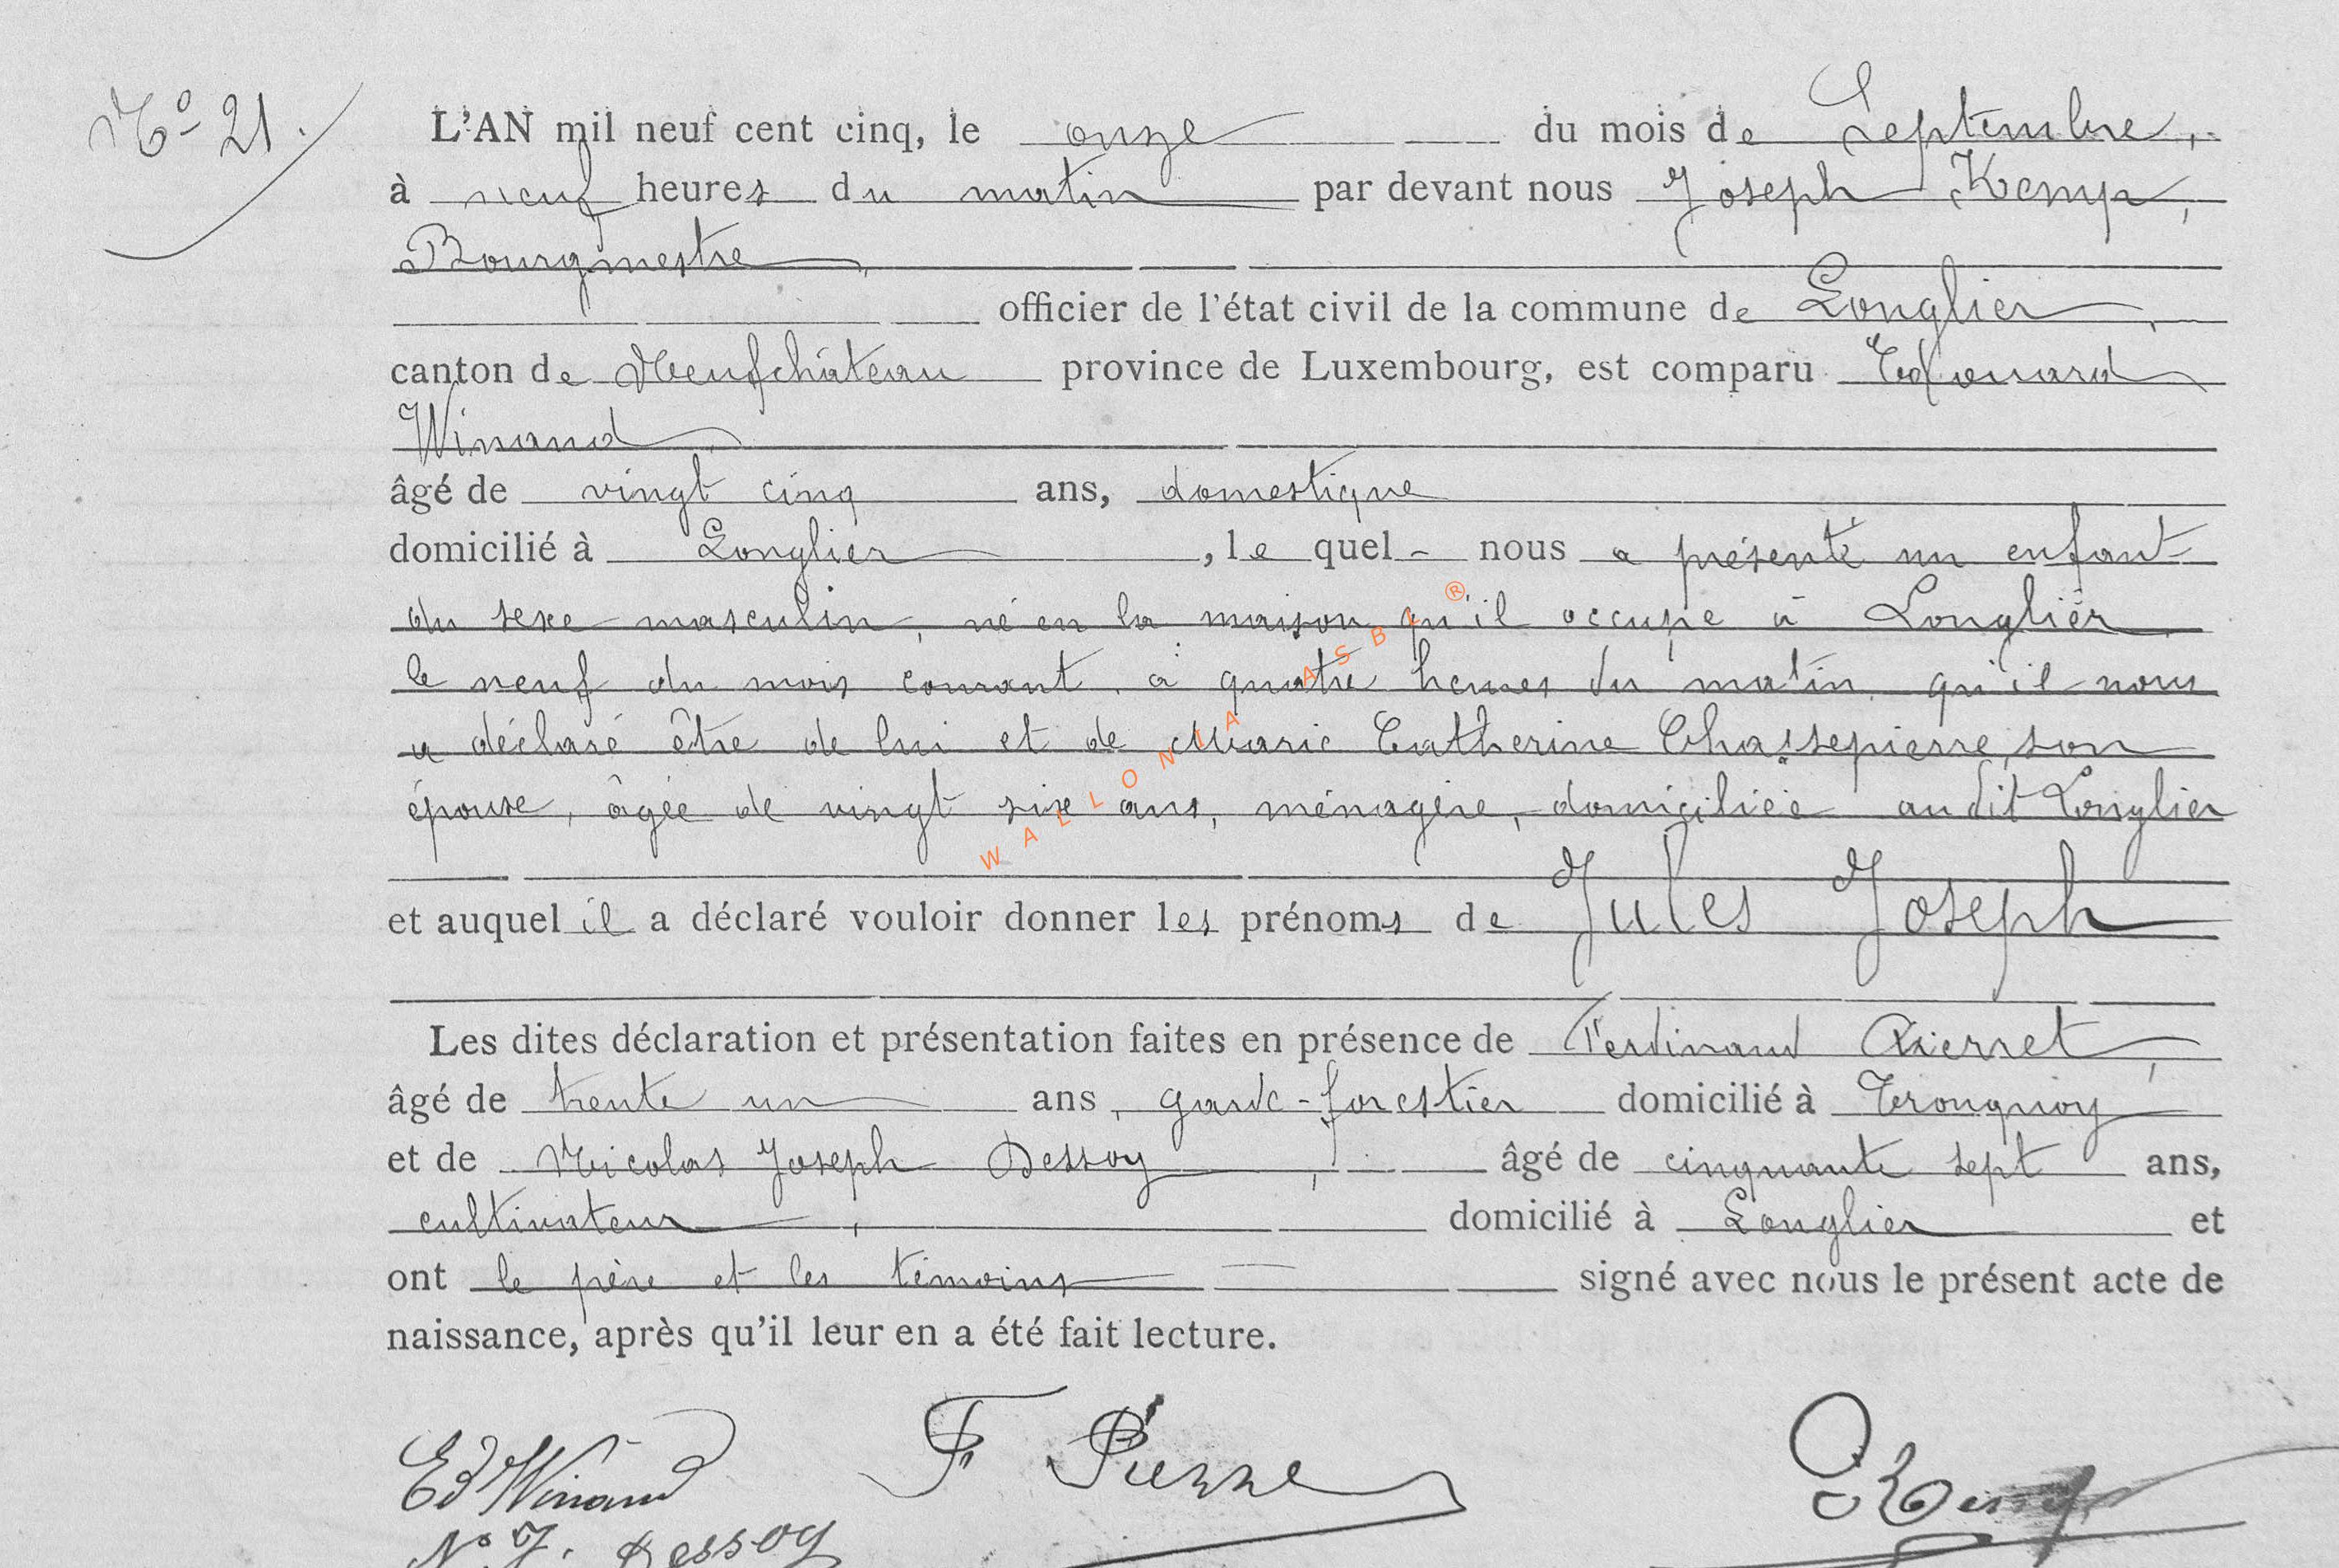 No 21.
L'AN mil neuf cent cinq, le onze du mois de Septembre,
à neuf heures du matin par devant nous Joseph Kemp,
Bourgmestre,
officier de l'état civil de la commune de Longlier,
canton de Neufchâteau province de Luxembourg, est comparu Edouard
Winand,
âgé de vingt cinq ans, domestique
domicilié à Longlier, le quel - nous a présenté un enfant
du sexe masculin, né en la maison qu'il occupe à Longlier
le neuf du mois courant, à quatre heures du matin, qu'il nous
a déclaré être de lui et de Marie Catherine Chassepierre, son
épouse, âgée de vingt six ans, ménagère, domiciliée au dit Longlier
et auquel il a déclaré vouloir donner les prénoms de Jules Joseph
Les dites déclaration et présentation faites en présence de Ferdinand Pierret,
âgé de trente un ans, garde-forestier domicilié à Tronquoy
et de Nicolas Joseph Dessoy, âgé de cinquante sept ans,
cultivateur, domicilié à Longlier et
ont le père et les témoins signé avec nous le présent acte de
naissance, après qu'il leur en a été fait lecture.
Ed Winand F Pierre Kemp
N. J. Dessoy
WALLONIA ASBL ®